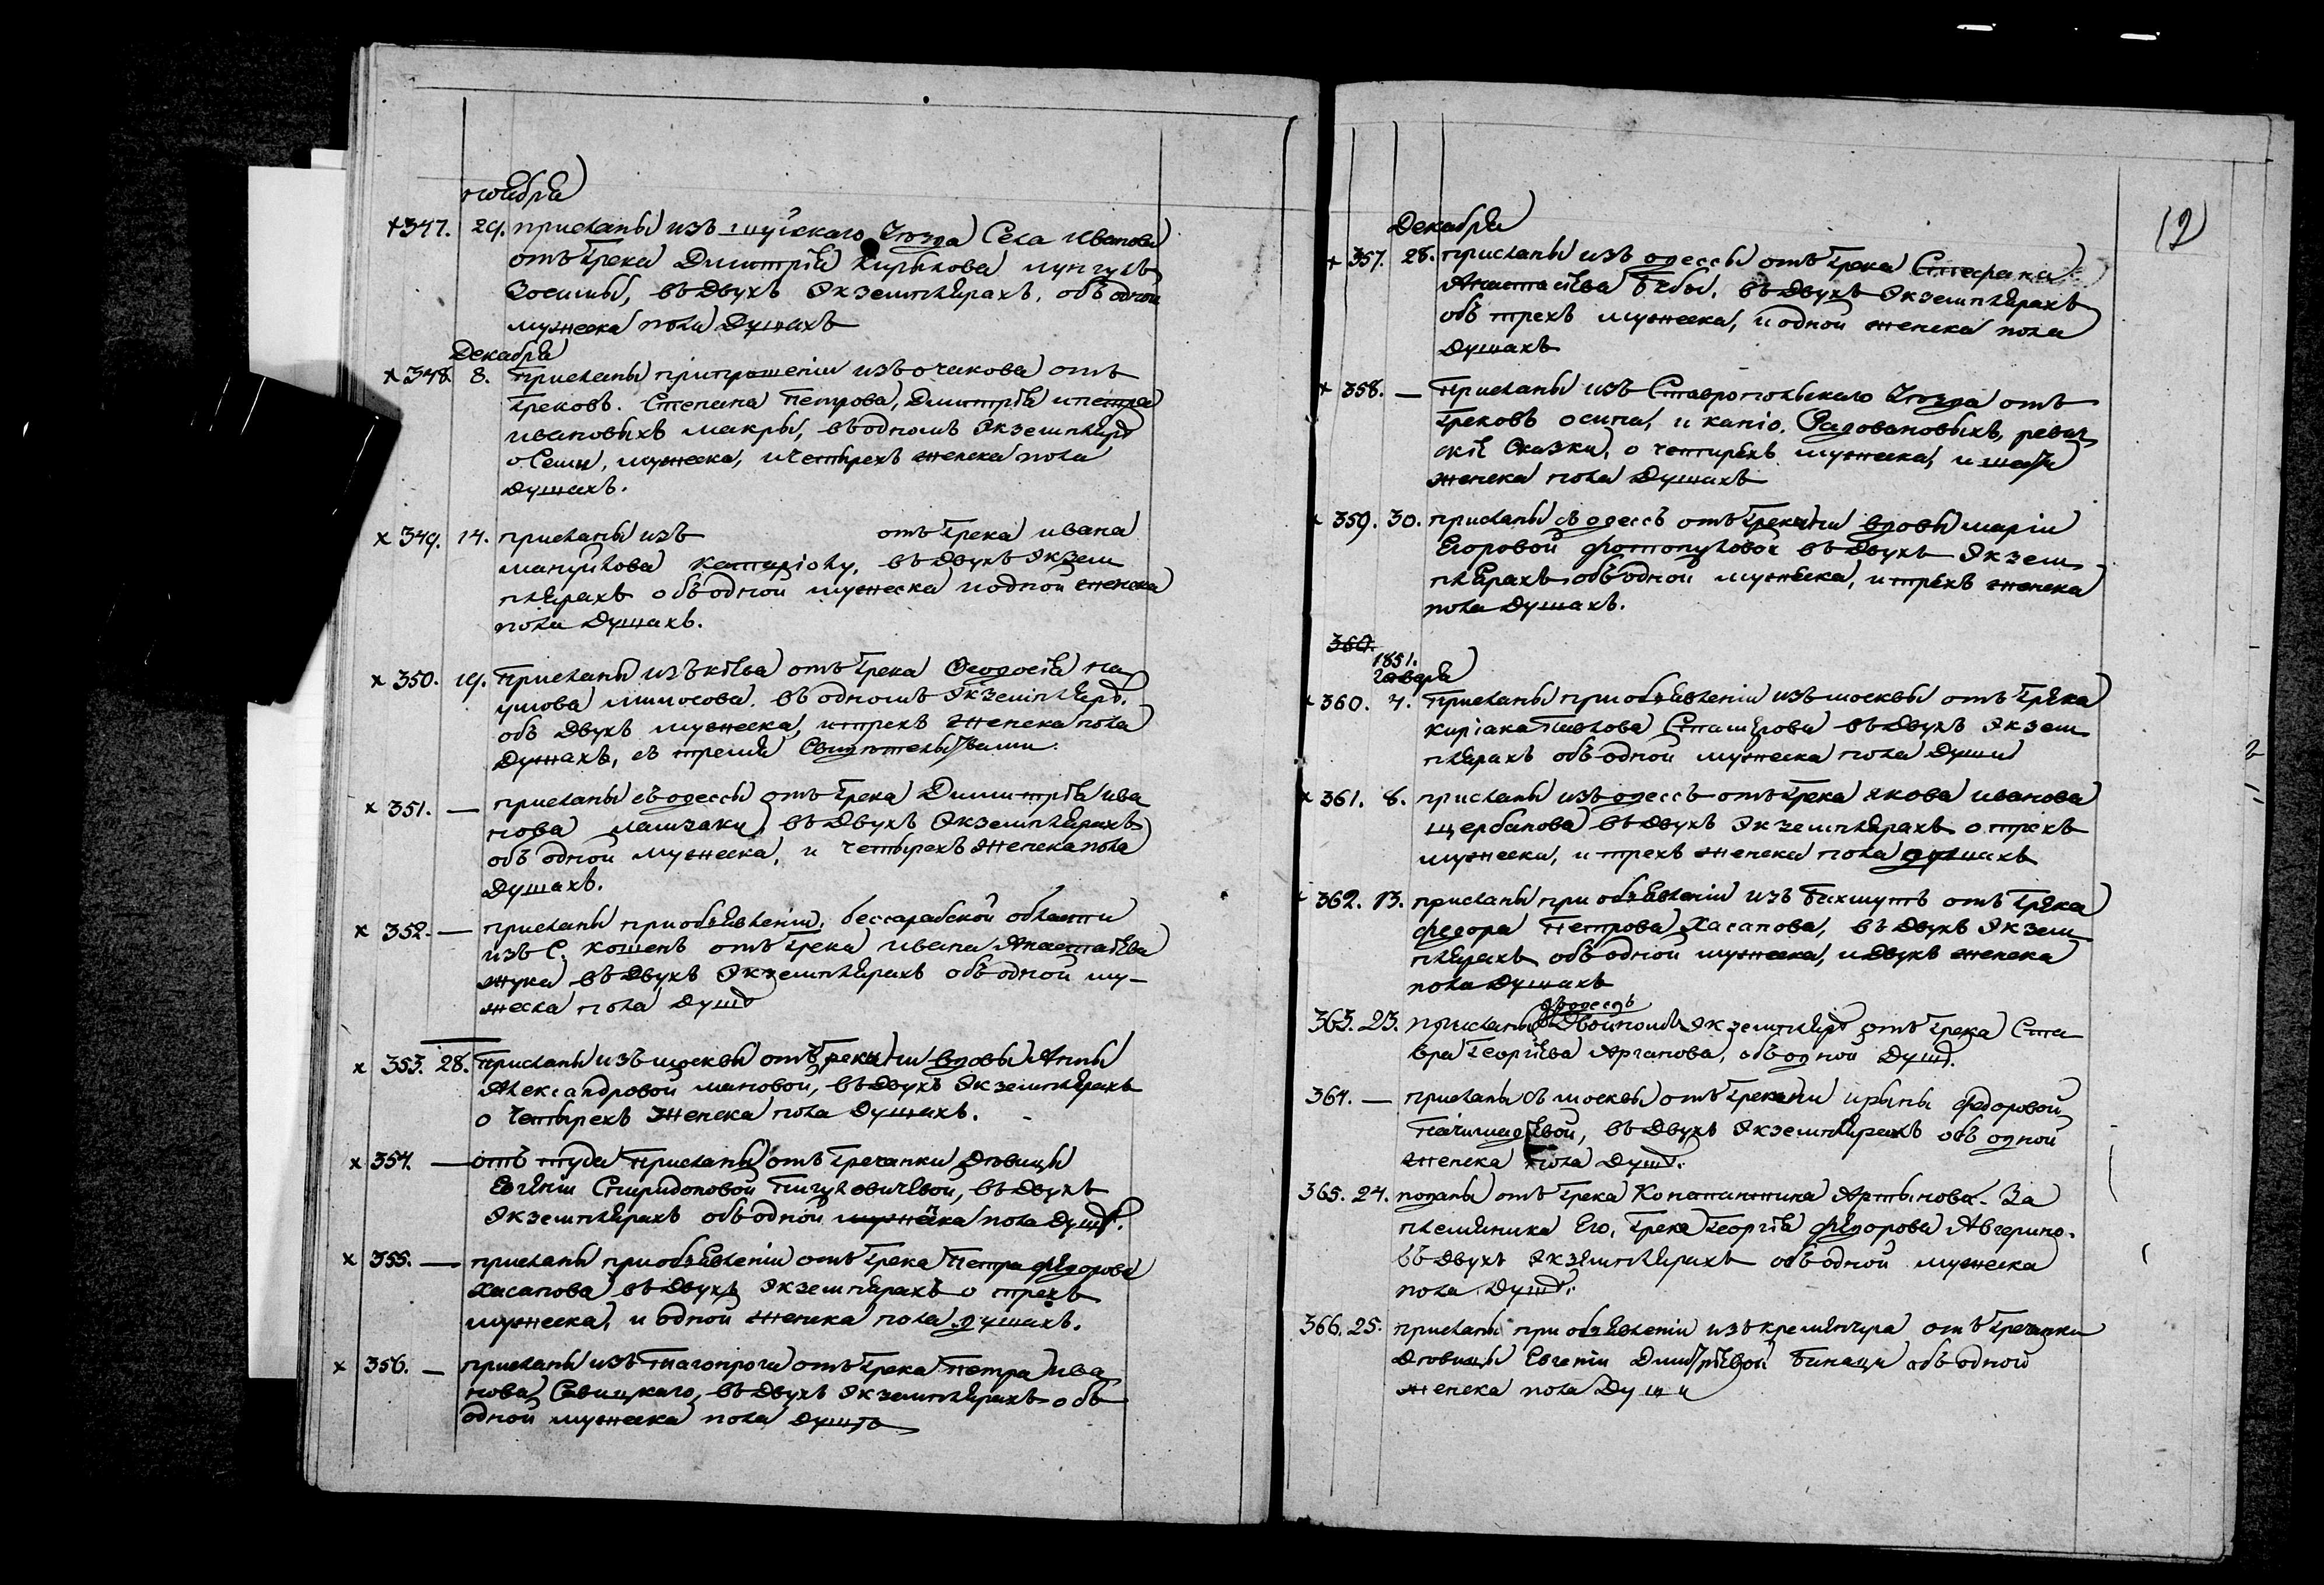 ноября
×347. 29. присланы изъ шуйскаго уѣзда Села Иванова
отъ Грека Димитрія Кирыкова
Зосимы, въ двухъ Экземплярахъ, объ одной
мужеска пола душахъ
Декабря
×348 8. присланы при прошеніи изъ очакова отъ
Грековъ. Степана Петрова, Димитрія и петра
ивановыхъ макры, въ одномъ Экземплярѣ
о Семи, мужеска, и четырехъ женска пола
душахъ.
×349. 14. присланы изъ отъ Грека ивана
мануйлова въ двухъ Экзем
плярахъ объ одной мужеска и одной женска
пола душахъ.
×350. 19. присланы изъ кіева отъ Грека Ѳеодосія на
умова въ одномъ Экземплярѣ.
объ двухъ мужеска, и трехъ женска пола
душахъ, съ тремя Свидѣтельствами.
×351. — присланы съ одессы отъ Грека Димитрія ива
нова въ двухъ Экземплярахъ
объ одной мужеска, и четырехъ женска пола
душахъ.
×352. — присланы при объявленіи, бессарабской области
изъ С. кошенъ отъ Грека ивана Анастасѣва
жука въ двухъ Экземплярахъ объ одной му-
жеска пола душѣ
×353. 28. присланы изъ москвы отъ Грекини вдовы Анны
Александровой мановой, въ двухъ Экземплярахъ
о четырехъ женска пола душахъ.
×354. — отъ туда присланы отъ Гречанки дѣвицы
Евгеніи Спиридоновой въ двухъ
Экземплярахъ объ одной женска пола душѣ.
×355. — присланы при объявленіи отъ Грека Петра федорова
Хасапова въ двухъ Экземплярахъ о трехъ
мужеска, и одной женска пола душахъ.
×356. — присланы изъ Тагонрога отъ Грека петра ива
нова Савицкаго, въ двухъ Экземплярахъ объ
одной мужеска пола душѣ
12
Декабря
×357. 28. присланы изъ одессы отъ Грека Стефана
Анастасіева въ двухъ Экземплярахъ
объ трехъ мужеска, и одной женска пола
душахъ
×358. — присланы изъ Ставропольскаго уѣзда отъ
Грековъ осипа, и Радовановыхъ, ревиз
скіе Сказки, о четырехъ мужеска, и шести
женска пола душахъ
×359. 30. присланы съ одессъ отъ Грекини вдовы маріи
Егоровой фотопуловой въ двухъ Экзем
плярахъ объ одной мужеска, и трехъ женска
пола душахъ.
360.
1851.
Генваря
×360. 4. присланы при объявленіи изъ москвы отъ Грека
киріака Павлова въ двухъ Экзем
плярахъ объ одной мужеска пола души
×361. 8. присланы изъ одессъ отъ Грека якова иванова
щербанова въ двухъ Экземплярахъ о трехъ
мужеска, и трехъ женска пола душахъ
×362. 13. присланы при объявленіи изъ Бахмутъ отъ Грека
федора Петрова Хасапова, въ двухъ Экзем
плярахъ объ одной мужеска, и двухъ женска
пола душахъ
изъ одессъ
363. 23. присланы двойномъ экземплярѣ отъ Грека Ста
вра Георгіева Арганова, объ одной душѣ.
364. — присланы съ москвы отъ Грекини ирины федоровой
въ двухъ Экземплярахъ объ одной
женска пола душѣ.
365. 24. поданы отъ Грека Константина Артынова. За
племяника Его, Грека Георгія федорова Авгерино.
въ двухъ экземплярахъ объ одной мужеска
пола душѣ.
366. 25. присланы при объявленіи изъ кременчуга отъ Гречанки
дѣвицы Евгеніи Дмитріевой объ одной
женска пола души